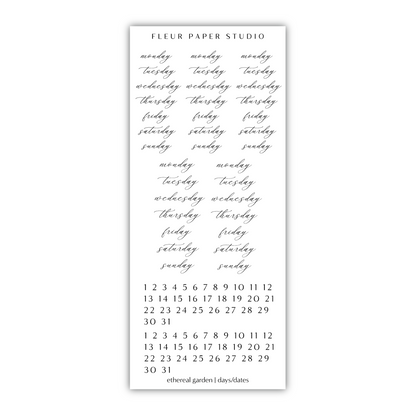 FLEUR PAPER STUDIO
monday monday monday
tuesday tuesday tuesday
wednesday wednesday wednesday
thursday thursday thursday
friday friday friday
saturday saturday saturday
sunday sunday sunday
monday monday
tuesday tuesday
wednesday wednesday
thursday thursday
friday friday
saturday saturday
sunday sunday
1 2 3 4 5 6 7 8 9 10 11 12
13 14 15 16 17 18 19 20 21
22 23 24 25 26 27 28 29
30 31
1 2 3 4 5 6 7 8 9 10 11 12
13 14 15 16 17 18 19 20 21
22 23 24 25 26 27 28 29
30 31
ethereal garden | days/dates